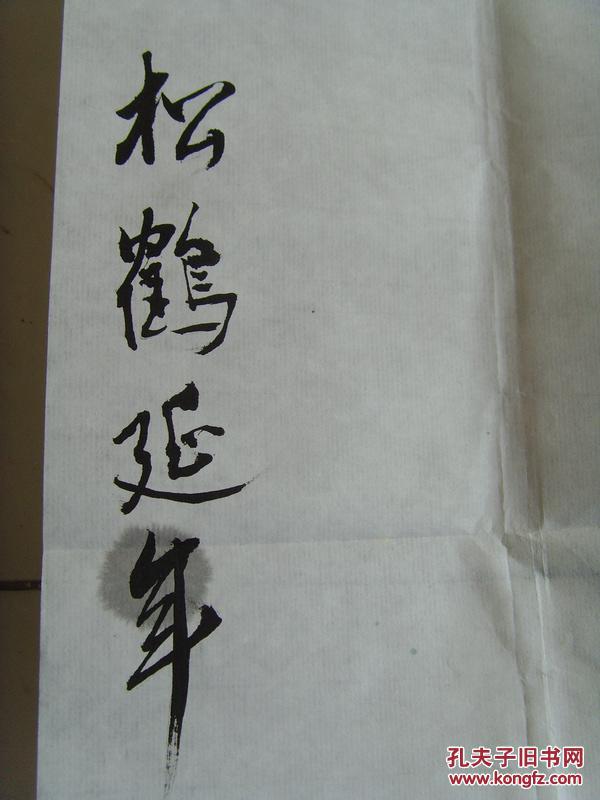 松鶴延年
孔夫子旧书网
www.kongfz.com